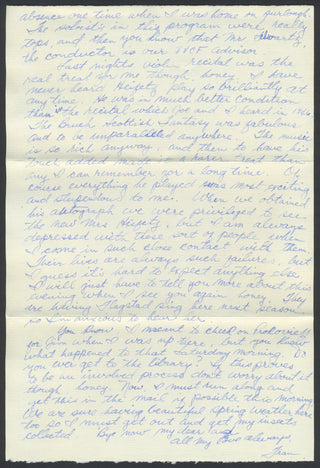 absence one time when I was home on furlough.
The soloists in this program were really
tops, and then you know that Mr. Swartz,
the conductor is our IVCF advisor.
Last night's violin recital was the
real treat for me though, honey. I have
never heard Heifetz play so brilliantly at
any time. He was in much better condition
than the recital which you and I heard in '46.
The Bruch, Scottish Fantasy was fabulous
and so unparalleled anywhere. The music
is so rich anyway, and then to have his
touch added made it a rarer treat than
any I can remember for a long time. Of
course everything he played was most exciting
and stupendous to me. When we obtained
his autograph we were privileged to see
the new Mrs. Heifetz, but I am always
depressed with these sort of people when
I come in such close contact with them.
Their lives are always such failures, but
I guess it's hard to expect anything else.
I will just have to tell you more about this
evening when I see you again honey. They
are having Flagstad sing here next season,
so I'm anxious to hear her.
You know, I meant to check on
for Jim when I was up there, but you know
what happened to that Saturday morning. Do
you ever get to the library? If this proves
to be an involved process don't worry about it
though honey. Now, I must run along and
get this in the mail if possible this morning.
We are sure having beautiful spring weather here
too so I must get out and get my insects
collected. Bye now my dear and
all my love always,